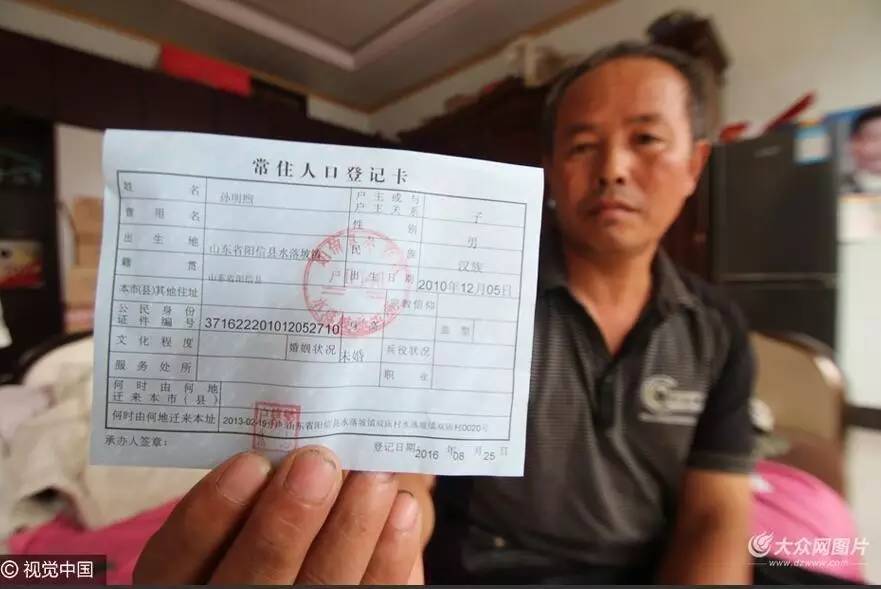 常住人口登记卡
姓名 孙明煦 户主或与户主关系 子
曾用名 性别 男
出生地 山东省阳信县水落坡镇 民族 汉族
籍贯 山东省阳信县 出生日期 2010年12月05日
本市(县)其他住址 宗教信仰
公民身份证件编号 371622201012052710 血型
文化程度 婚姻状况 未婚 兵役状况
服务处所 职业
何时由何地迁来本市(县)
何时由何地迁来本址 2013-02-19 山东省阳信县水落坡镇双庙村水落坡镇双庙村0020号
承办人签章: 登记日期:2016年08月25日
© 视觉中国
大众网图片
www.dzwww.com